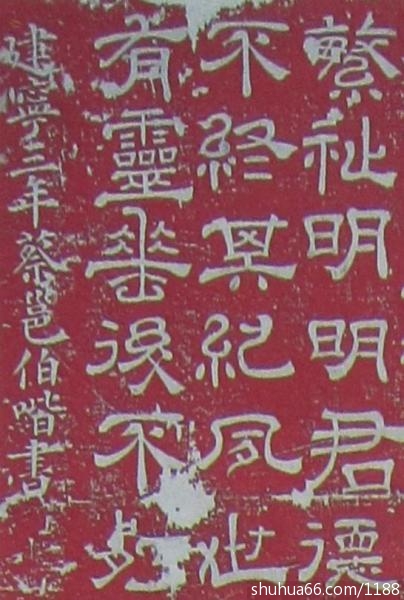 繁祉明明君德
不終其紀夙世
有靈垂後不朽
建寧三年蔡邕伯喈書
shuhua66.com/1188